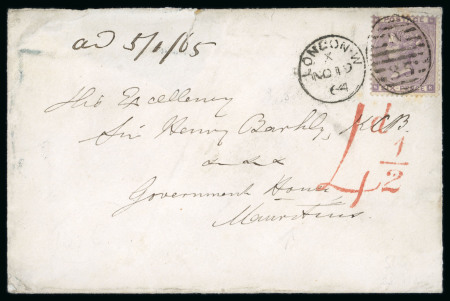 ad 5/1/65
LONDON·W
X
NO 19
64
His Excellency
Sir Henry Barkly, KCB.
&c &c &c
Government House
Mauritius.
4d
1/2